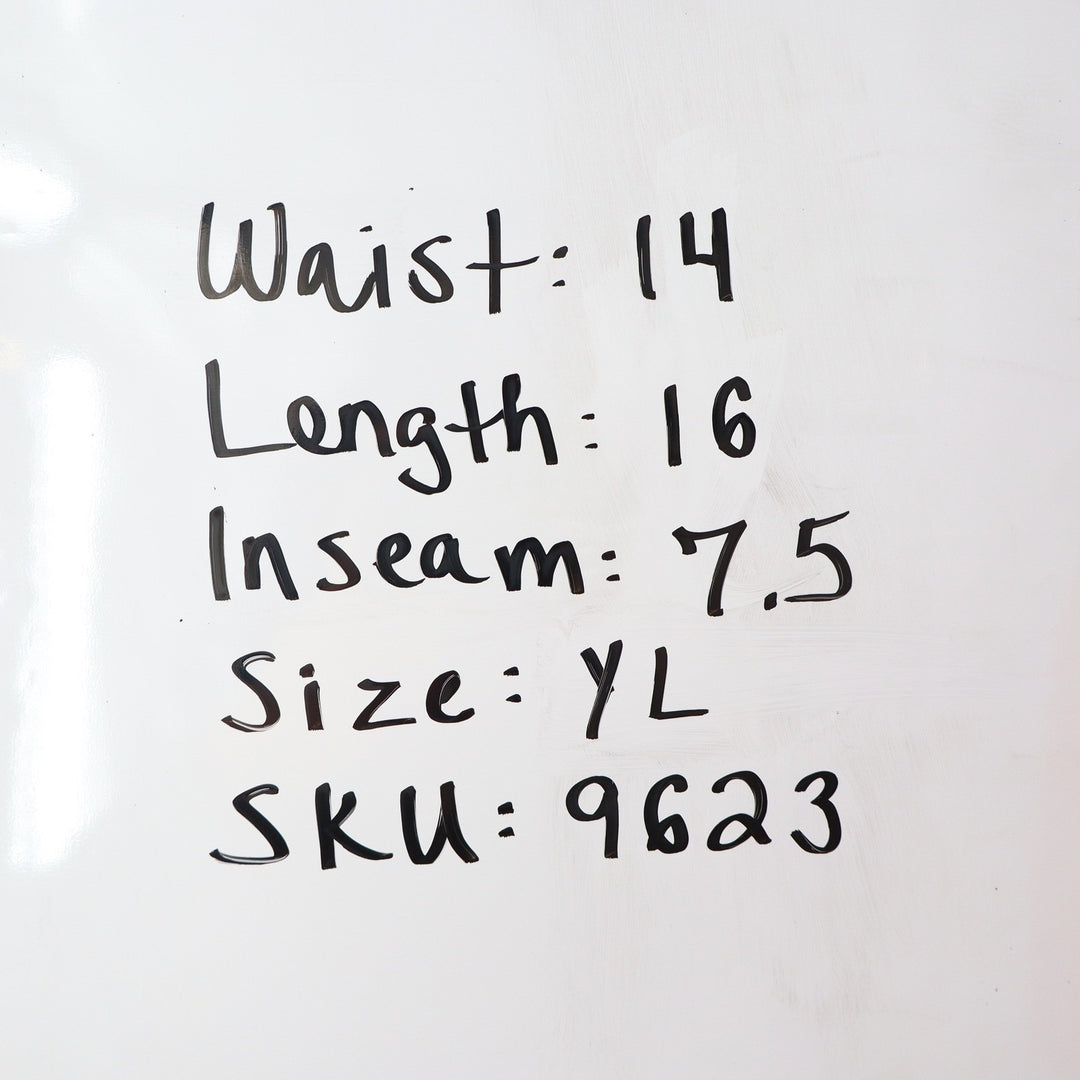 Waist: 14
Length: 16
Inseam: 7.5
Size: YL
SKU: 9623